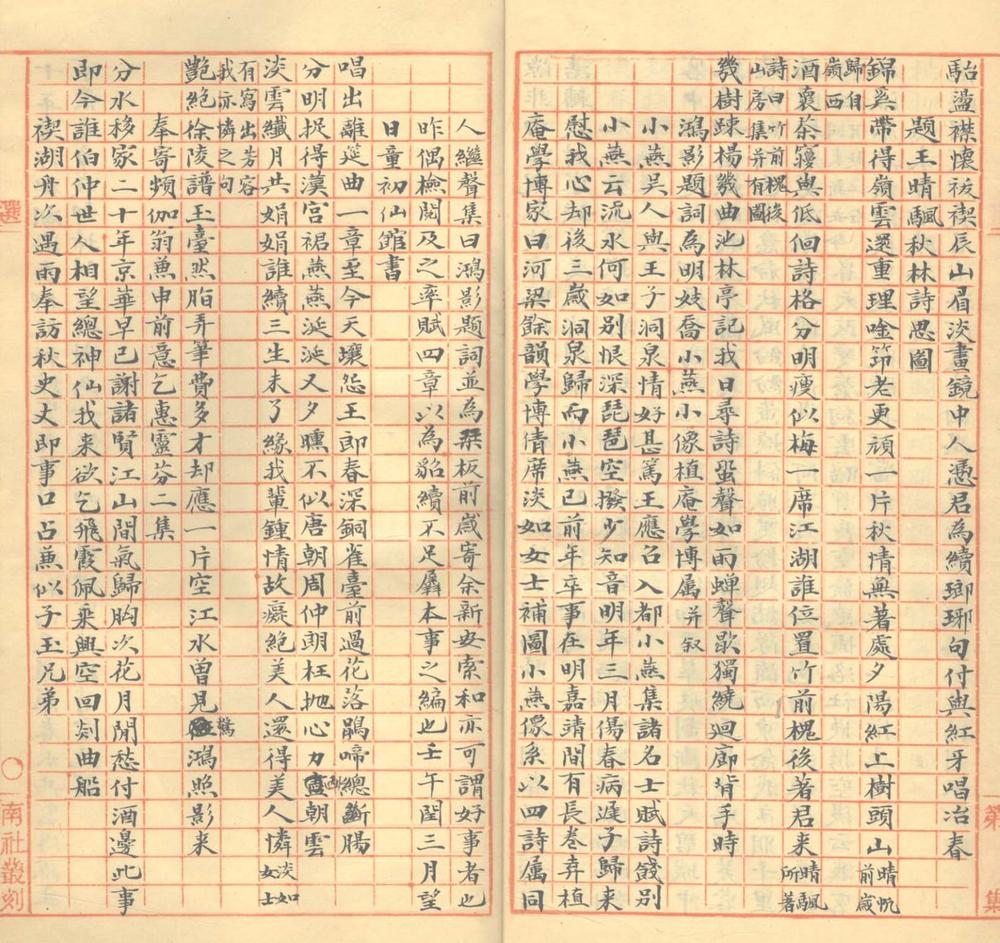 駘盪襟懷祓禊辰山眉淡畫鏡中人憑君為續瑯琊句付與紅牙唱冶春
題王晴颿秋林詩思圖
錦奚帶得嶺雲還重理唫笻老更頑一片秋情無著處夕陽紅上樹頭山晴帆前歲歸自嶺西
酒襄茶寱與低佪詩格分明瘦似梅一席江湖誰位置竹前槐後著君來晴颿所著詩曰前槐後山房集并有圖
幾樹踈楊幾曲池林亭記我日尋詩蛩聲如雨蟬聲歇獨繞迴廊背手時
鴻影題詞為明妓喬小燕小像植庵學博属并叙
小燕吴人與王子洞泉情好甚篤王應召入都小燕集諸名士賦詩餞別
小燕云流水何如別恨深琵琶空撥少知音明年三月傷春病遲子歸来
慰我心却後三歲洞泉歸而小燕已前年卒事在明嘉靖間有長卷弆植
庵學博家曰河梁餘韻學博倩席淡如女士補圖小燕像系以四詩属同
人繼聲集曰鴻影題詞並為栞板前歲寄余新安索和亦可謂好事者也
昨偶檢閱及之率賦四章以為貂續不足羼本事之編也壬午閏三月望
日童初仙館書
唱出離筵曲一章至今天壤怨王郎春深銅雀臺前過花落鵑啼總斷腸
分明捉得漢宮裙燕燕涎涎又夕曛不似唐朝周仲朗枉抛心力畫朝雲
淡雲纖月共娟娟誰續三生未了緣我輩鍾情故癡絕美人還得美人憐淡如女士有寫出芳容我亦憐之句
艷絕徐陵譜玉臺然脂弄筆費多才却應一片空江水曾見驚鴻照影来
奉寄頻伽翁兼申前意乞惠靈芬二集
分水移家二十年京華早已謝諸賢江山間氣歸胸次花月閒愁付酒邊此事
即今誰伯仲世人相望總神仙我来欲乞飛霞佩乘興空回剡曲船
禊湖舟次遇雨奉訪秋史丈即事口占兼似子玉兄弟
選
南社叢刻
第
集